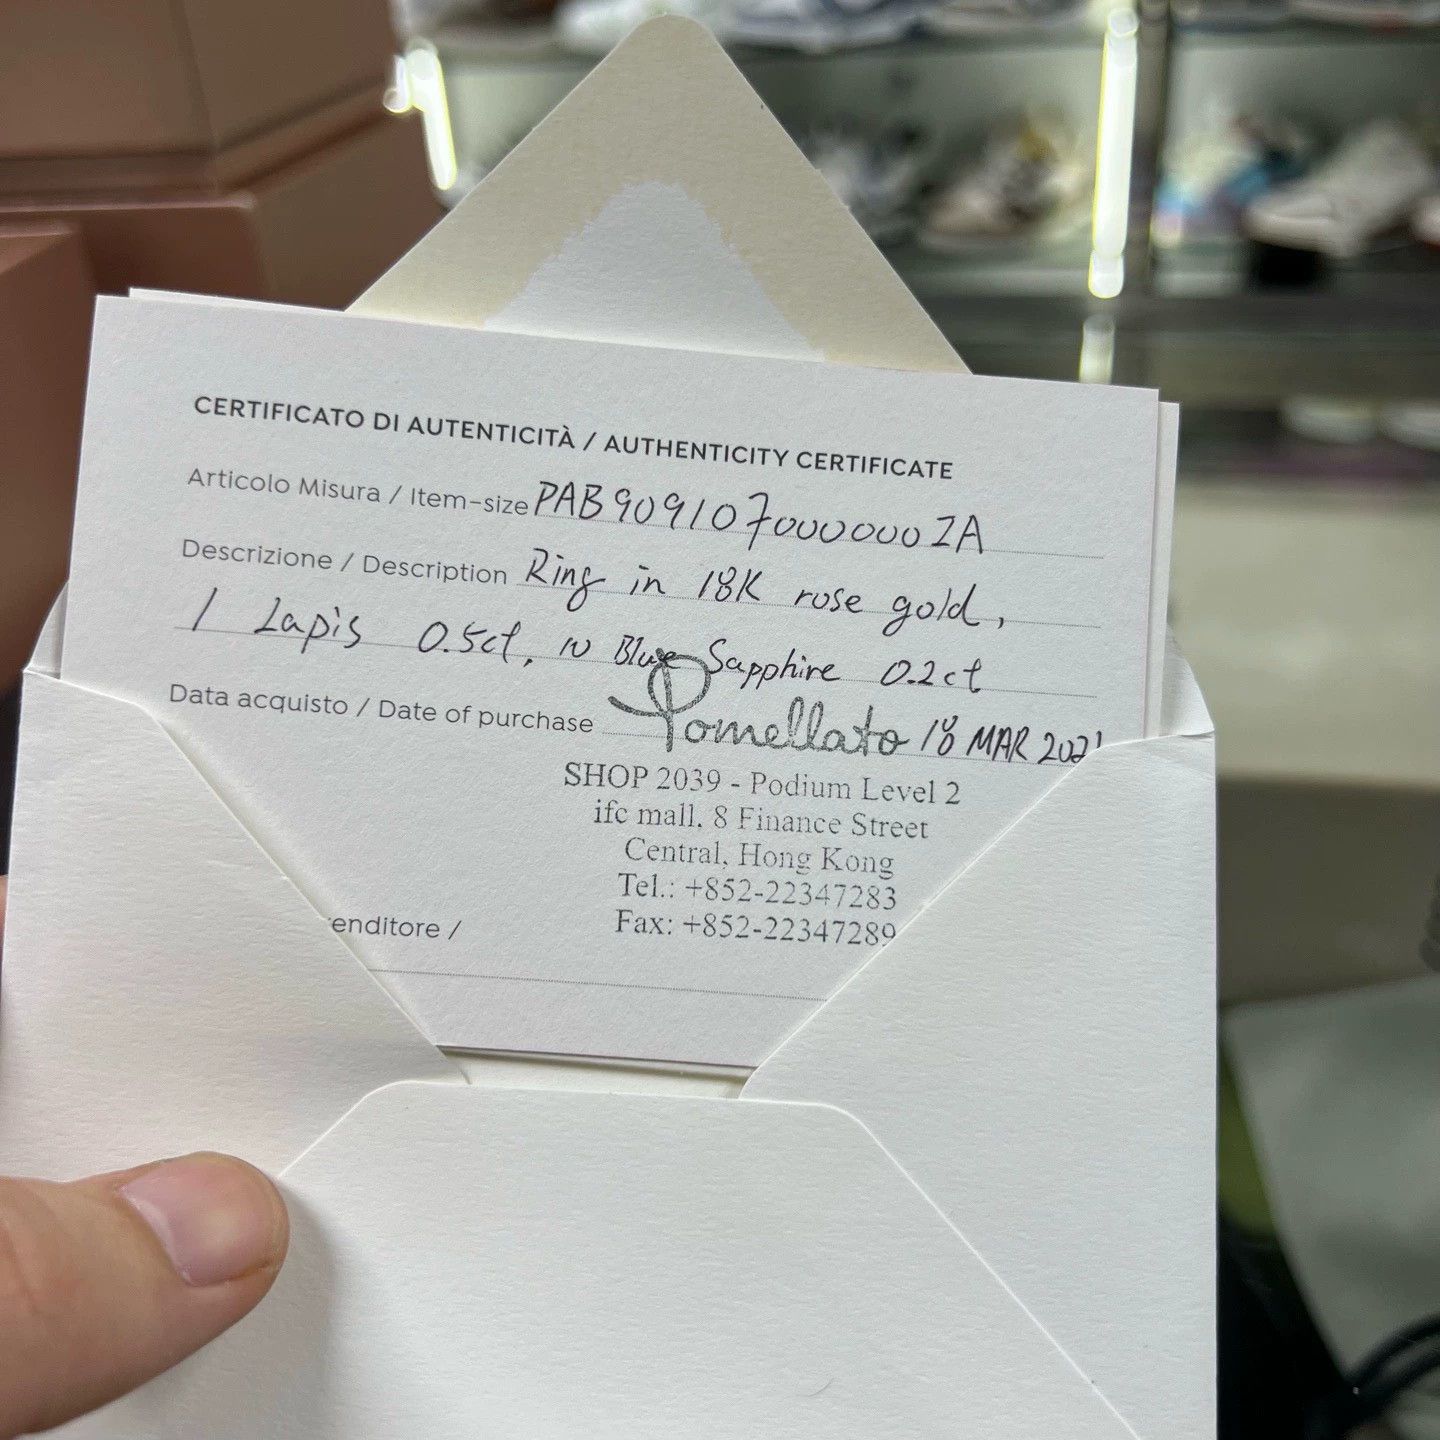 CERTIFICATO DI AUTENTICITÀ / AUTHENTICITY CERTIFICATE
Articolo Misura / Item-size PAB9091070000000ZA
Descrizione / Description Ring in 18K rose gold,
1 Lapis 0.5ct, 10 Blue Sapphire 0.2ct
Data acquisto / Date of purchase Pomellato 18 MAR 2021
SHOP 2039 - Podium Level 2
ifc mall, 8 Finance Street
Central, Hong Kong
Tel.: +852-22347283
Fax: +852-22347289
enditore /